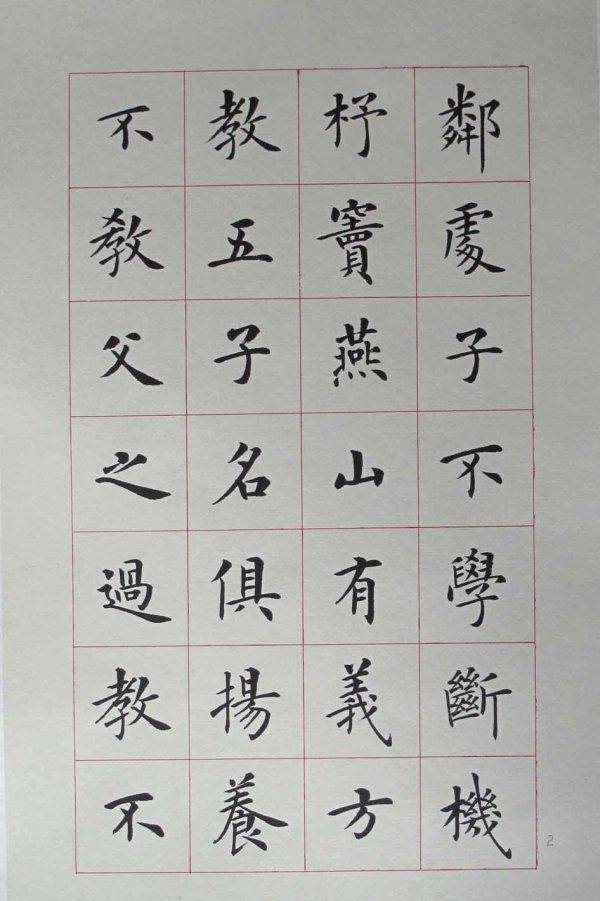 鄰處子不學斷機
杼竇燕山有義方
教五子名俱揚養
不教父之過教不
2